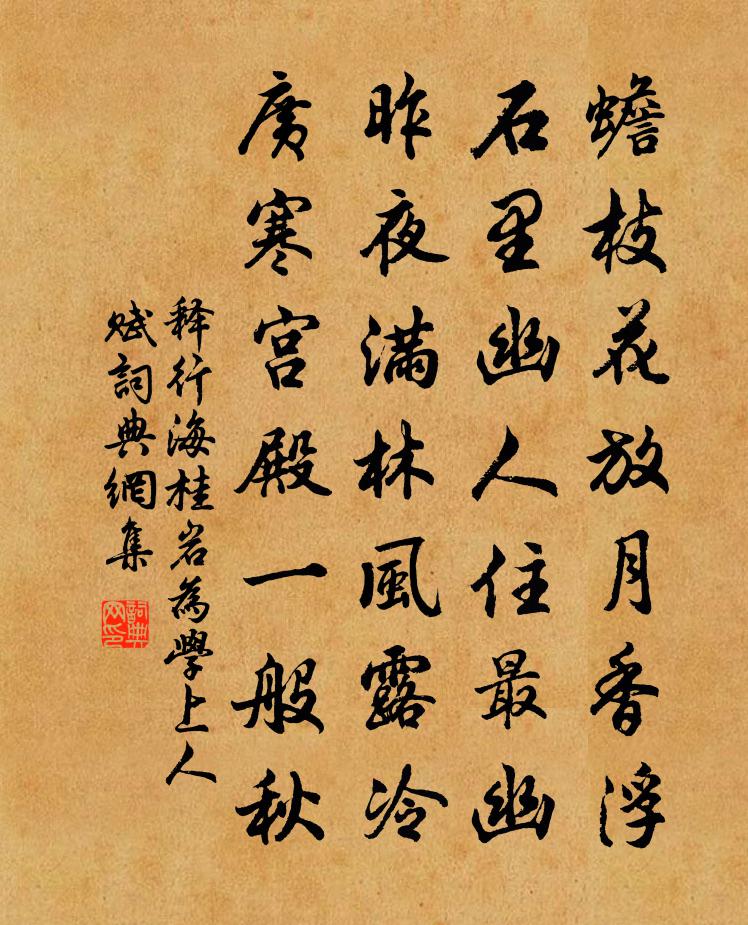 蟾枝花放月香浮
石里幽人住最幽
昨夜滿林風露冷
廣寒宮殿一般秋
释行海桂岩為學上人
赋詞典網集
詞典
网印